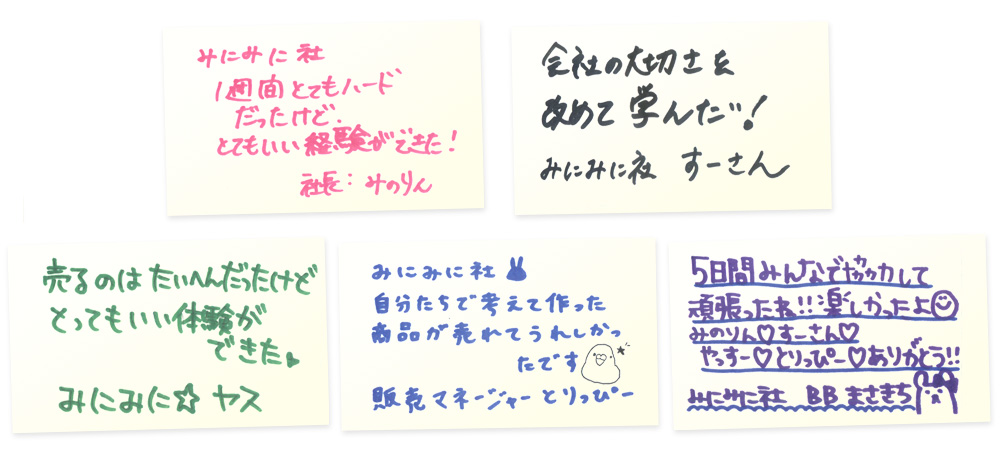 みにみに社
1週間とてもハード
だったけど、
とてもいい経験ができた!
社長:みのりん
会社の大切さを
改めて学んだ!
みにみに社 すーさん
売るのはたいへんだったけど
とってもいい体験が
できた。
みにみに☆ヤス
みにみに社
自分たちで考えて作った
商品が売れてうれしかっ
たです
販売マネージャーとりっぴー
5日間みんなで協力して
頑張ったね!!楽しかったよ
みのりん♡すーさん♡
やっすー♡とりっぴー♡ありがとう!!
みにみに社 BB まさきち